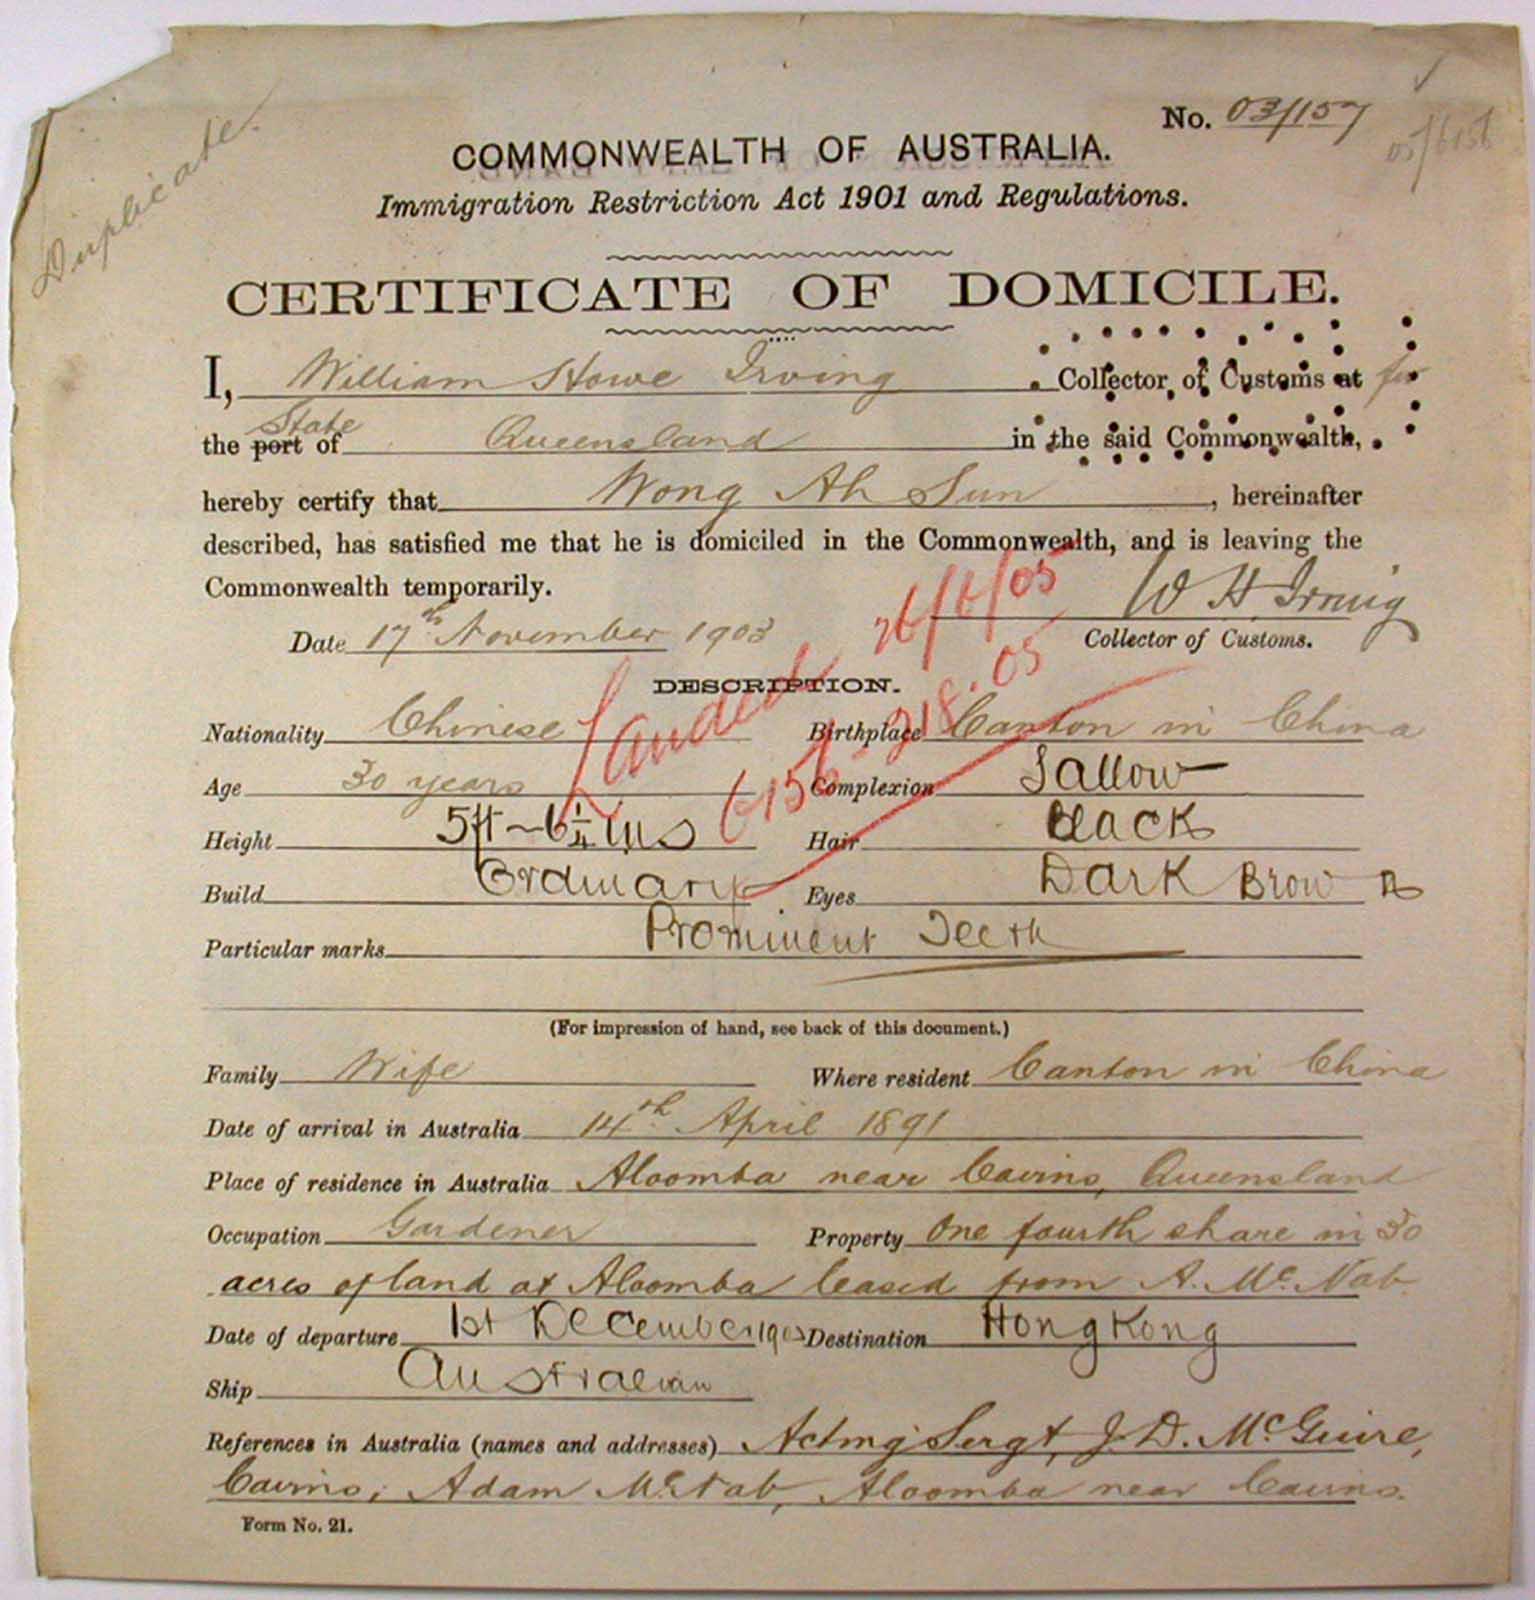 Duplicate.
No. 03/157
05/6156
COMMONWEALTH OF AUSTRALIA.
Immigration Restriction Act 1901 and Regulations.
CERTIFICATE OF DOMICILE.
I, William Howe Irving Collector of Customs at for
State
the port of Queensland in the said Commonwealth,
hereby certify that Wong Ah Sun, hereinafter
described, has satisfied me that he is domiciled in the Commonwealth, and is leaving the
Commonwealth temporarily.
W H Irving
Date 17th November 1903 Collector of Customs.
Landed 26/6/05
6156 - 05
DESCRIPTION.
Nationality Chinese Birthplace Canton in China
Age 30 years Complexion Sallow
Height 5ft - 6¼ ins Hair Black
Build Ordinary Eyes Dark Brown
Particular marks Prominent Teeth
(For impression of hand, see back of this document.)
Family Wife Where resident Canton in China
Date of arrival in Australia 14th April 1891
Place of residence in Australia Aloomba near Cairns, Queensland
Occupation Gardener Property One fourth share in 30
acres of land at Aloomba leased from A. McNab
Date of departure 1st December 1903 Destination Hong Kong
Ship Australian
References in Australia (names and addresses) Acting Sergt, J. D. McGuire,
Cairns; Adam McNab, Aloomba near Cairns.
Form No. 21.